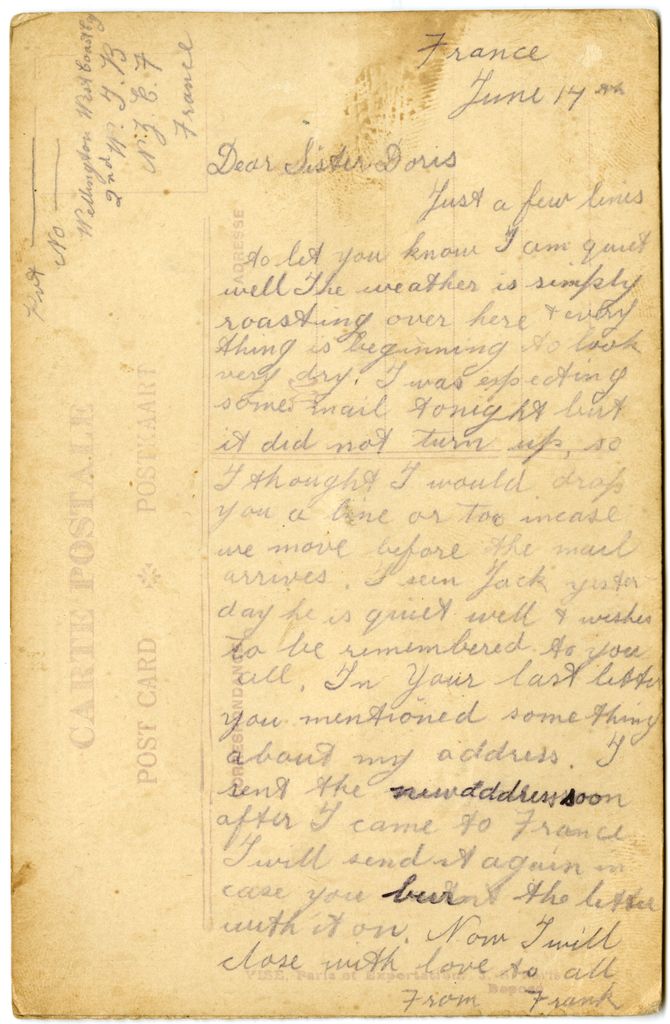 France
June 17th
Dear Sister Doris
Just a few lines
to let you know I am quiet
well The weather is simply
roasting over here & every
thing is beginning to look
very dry. I was expecting
some mail tonight but
it did not turn up, so
I thought I would drop
you a line or too incase
we move before the mail
arrives. I seen Jack yester
day he is quiet well & wishes
to be remembered to you
all. In Your last letter
you mentioned some thing
about my address. I
sent the new address soon
after I came to France
I will send it again in
case you the letter
with it on. Now I will
close with love to all
From Frank
Pvt
No
Wellington West Coast Coy
2nd W. I. B
N Z E F
France
CARTE POSTALE
POST CARD POSTKAART
CORRESPONDANCE
ADRESSE
VISÉ, Paris